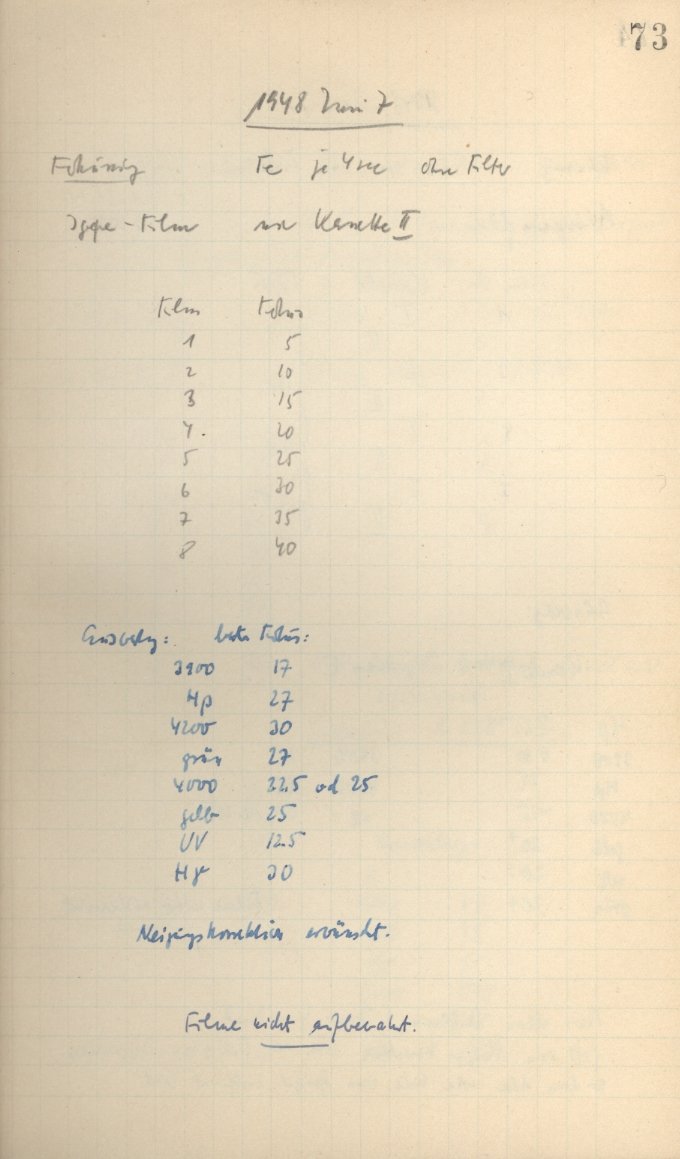 73
1948 Juni 7
Fe je 4 sec ohne Filter
Film Kassette II
Film Fokus
1 5
2 10
3 15
4. 20
5 25
6 30
7 35
8 40
beste Fokus:
3900 17
Hβ 27
4200 30
grün 27
4000 22.5 od 25
gelb 25
UV 12.5
Hγ 30
Neigungskorrektion erwünscht.
Filme nicht aufbewahrt.